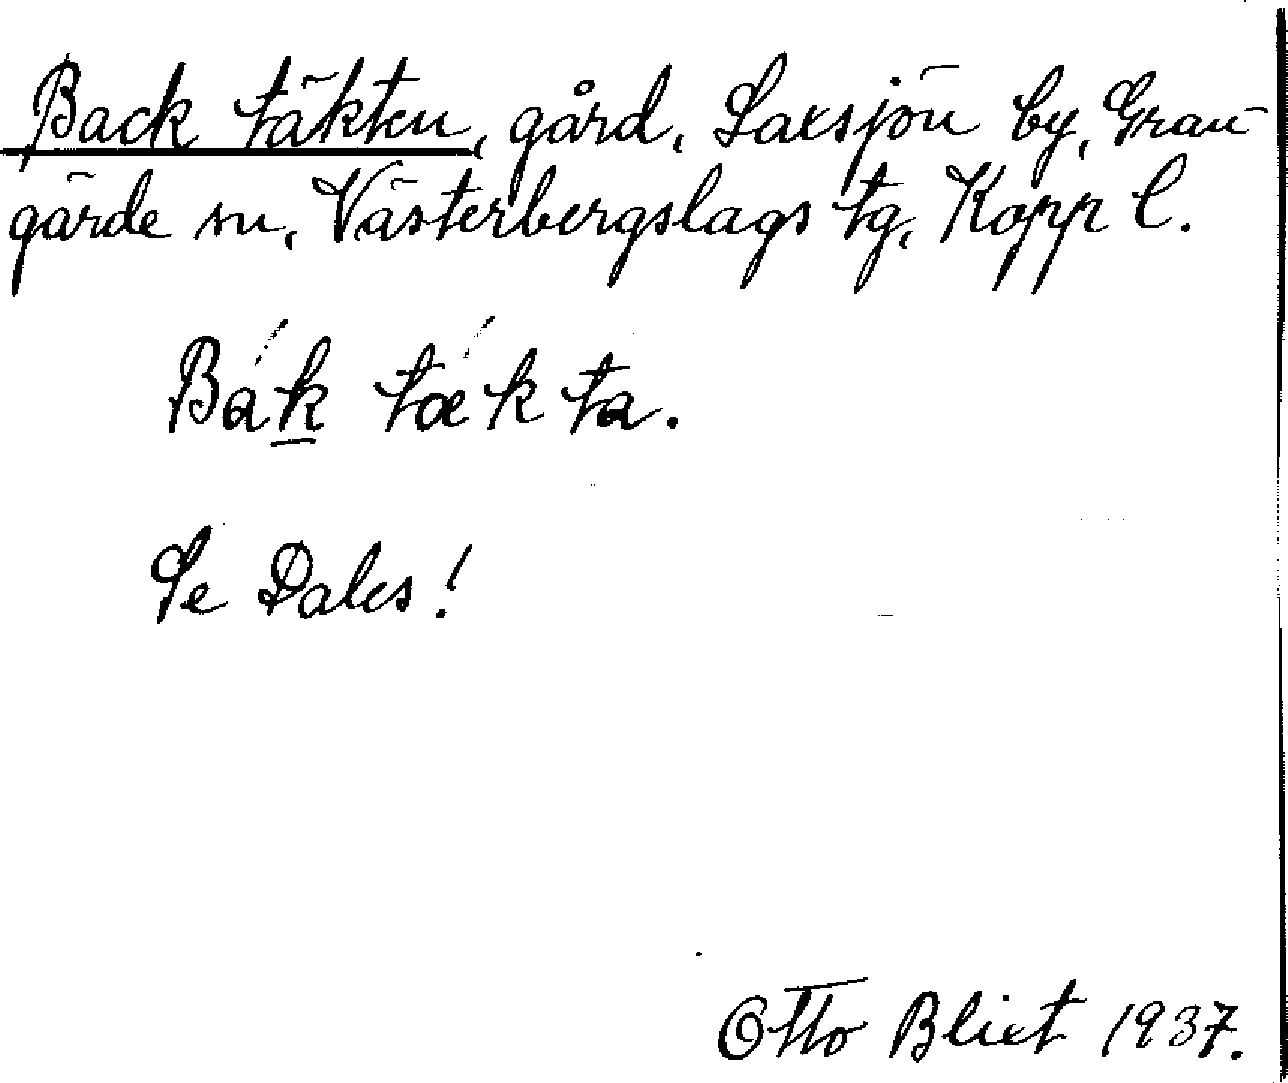 Back täkten, gård, Saxsjön by, Gran-
gärde sn, Västerbergslags tg, Kopp l.
Bák tǽkta.
Se Dales!
Otto Blixt 1937.